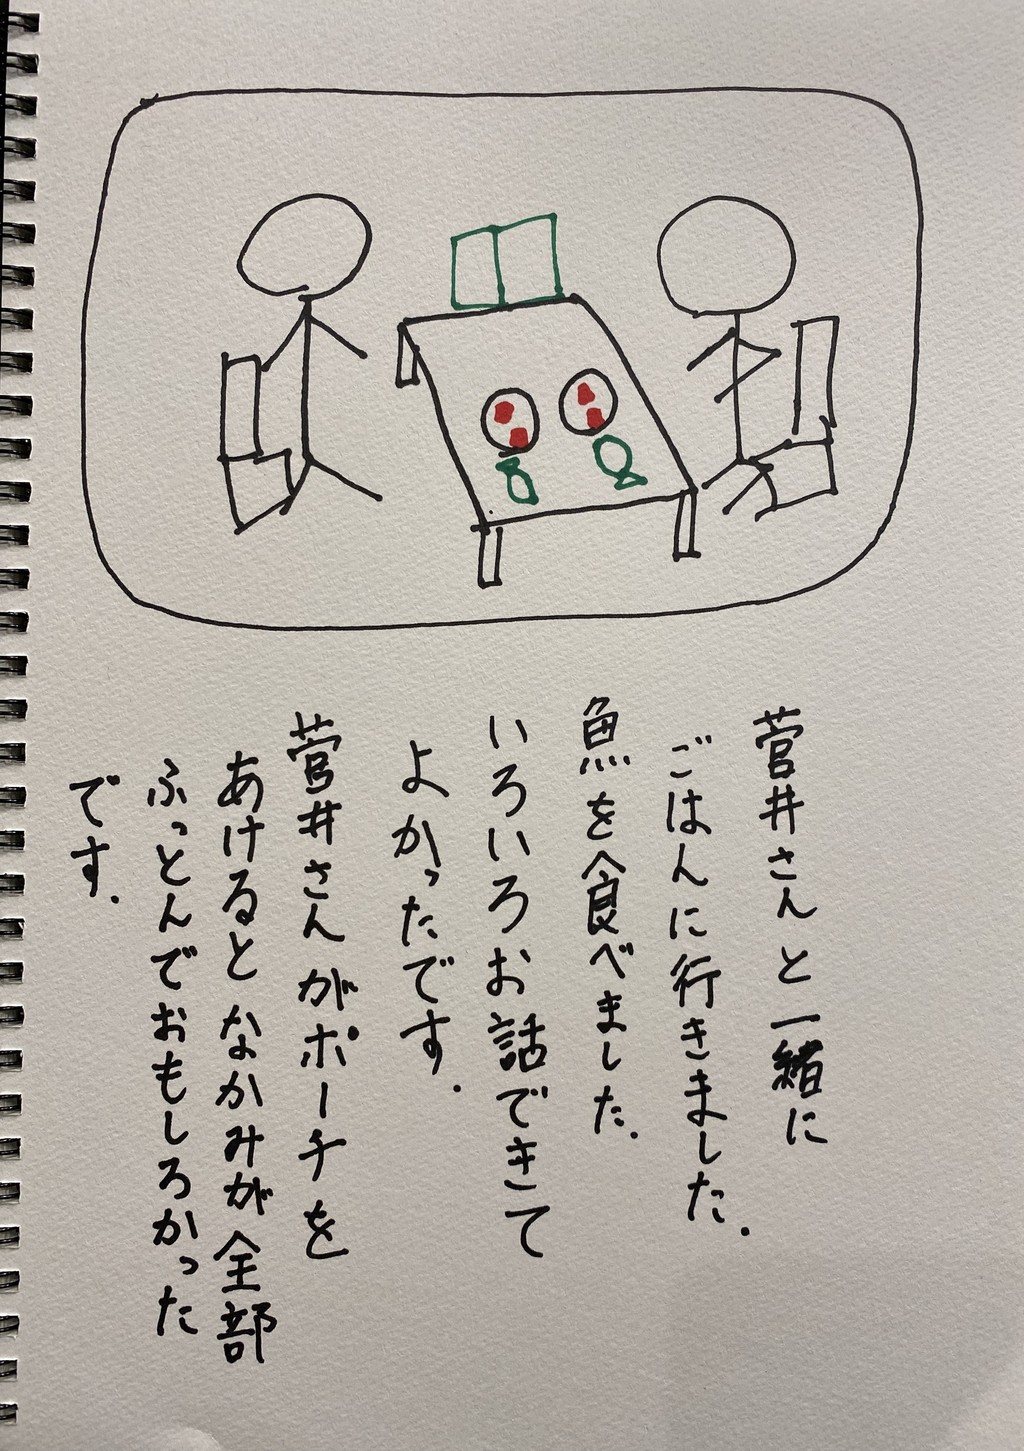 菅井さんと一緒に
ごはんに行きました.
魚を食べました.
いろいろお話できて
よかったです.
菅井さんがポーチを
あけるとなかみが全部
ふっとんでおもしろかった
です.